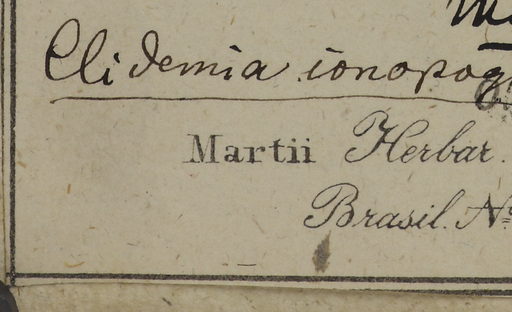 Clidemia ionopog
Martii Herbar.
Brasil. Nº